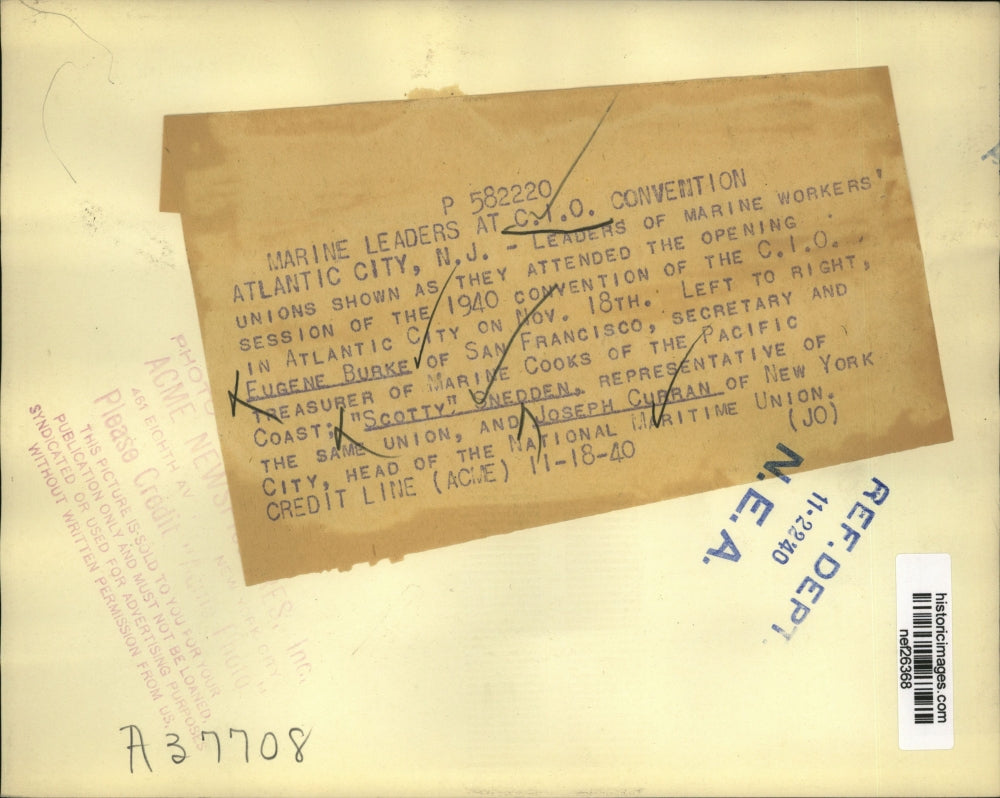 P 582220
MARINE LEADERS AT C.I.O. CONVENTION
ATLANTIC CITY, N.J. - LEADERS OF MARINE WORKERS'
UNIONS SHOWN AS THEY ATTENDED THE OPENING
SESSION OF THE 1940 CONVENTION OF THE C.I.O.
IN ATLANTIC CITY ON NOV. 18TH. LEFT TO RIGHT,
EUGENE BURKE OF SAN FRANCISCO, SECRETARY AND
TREASURER OF MARINE COOKS OF THE PACIFIC
COAST; "SCOTTY" SNEDDEN, REPRESENTATIVE OF
THE SAME UNION, AND JOSEPH CURRAN OF NEW YORK
CITY, HEAD OF THE NATIONAL MARITIME UNION.
CREDIT LINE (ACME) 11-18-40 (JO)
ACME NEWS
461 EIGHTH AV NEW YORK CITY
Please Credit
THIS PICTURE IS SOLD TO YOU FOR YOUR
PUBLICATION ONLY AND MUST NOT BE LOANED,
SYNDICATED OR USED FOR ADVERTISING PURPOSES
WITHOUT WRITTEN PERMISSION FROM US.
REF. DEPT
11-2240
N.E.A.
historicimages.com
nef26368
A37708